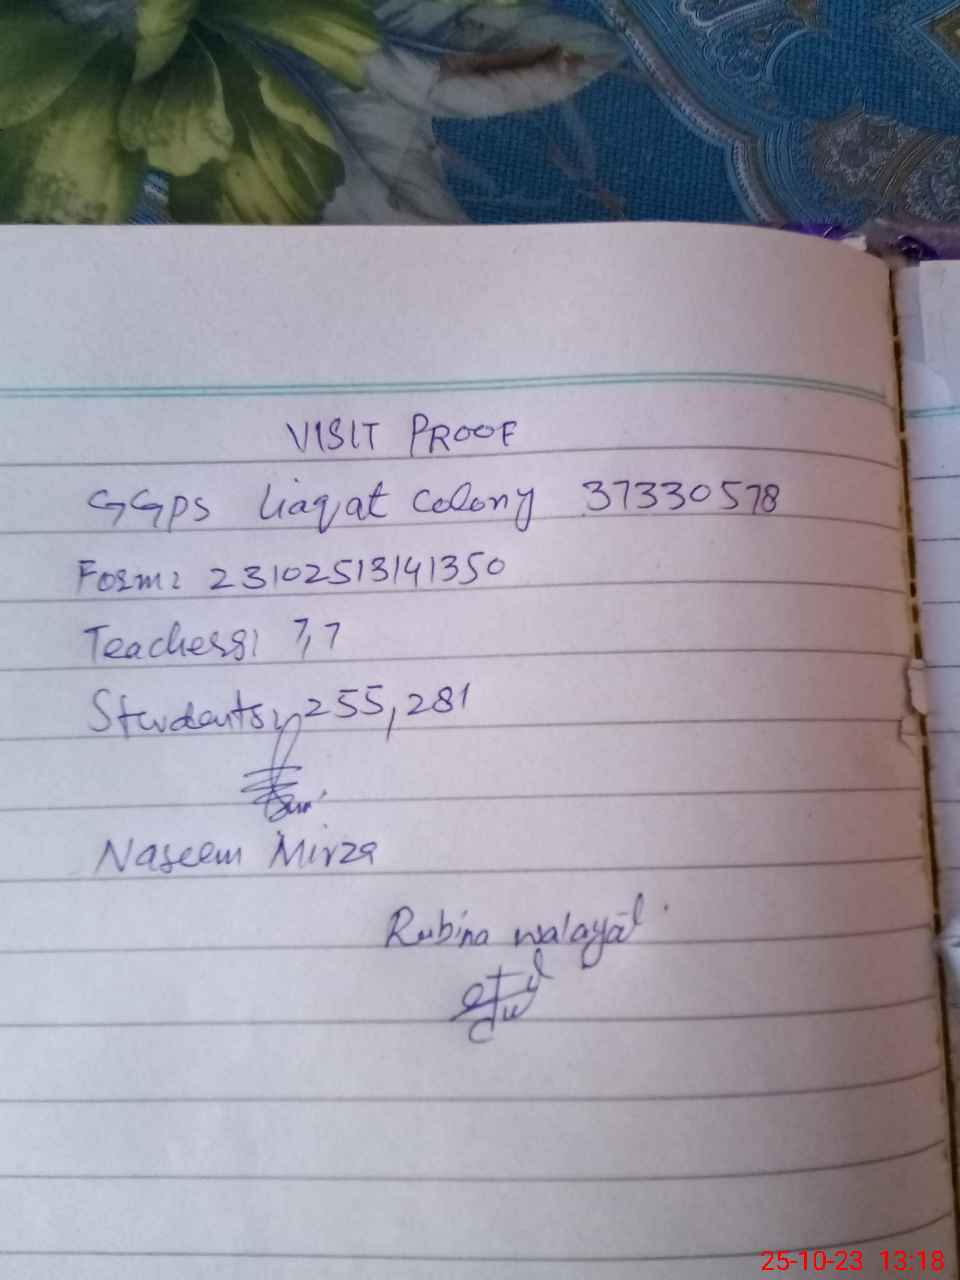 VISIT PROOF
GGPS Liaqat Colony 37330578
Form: 23102513141350
Teachers: 7,7
Students: 255,281
Naseem Mirza
Rubina walayat
25-10-23 13:18